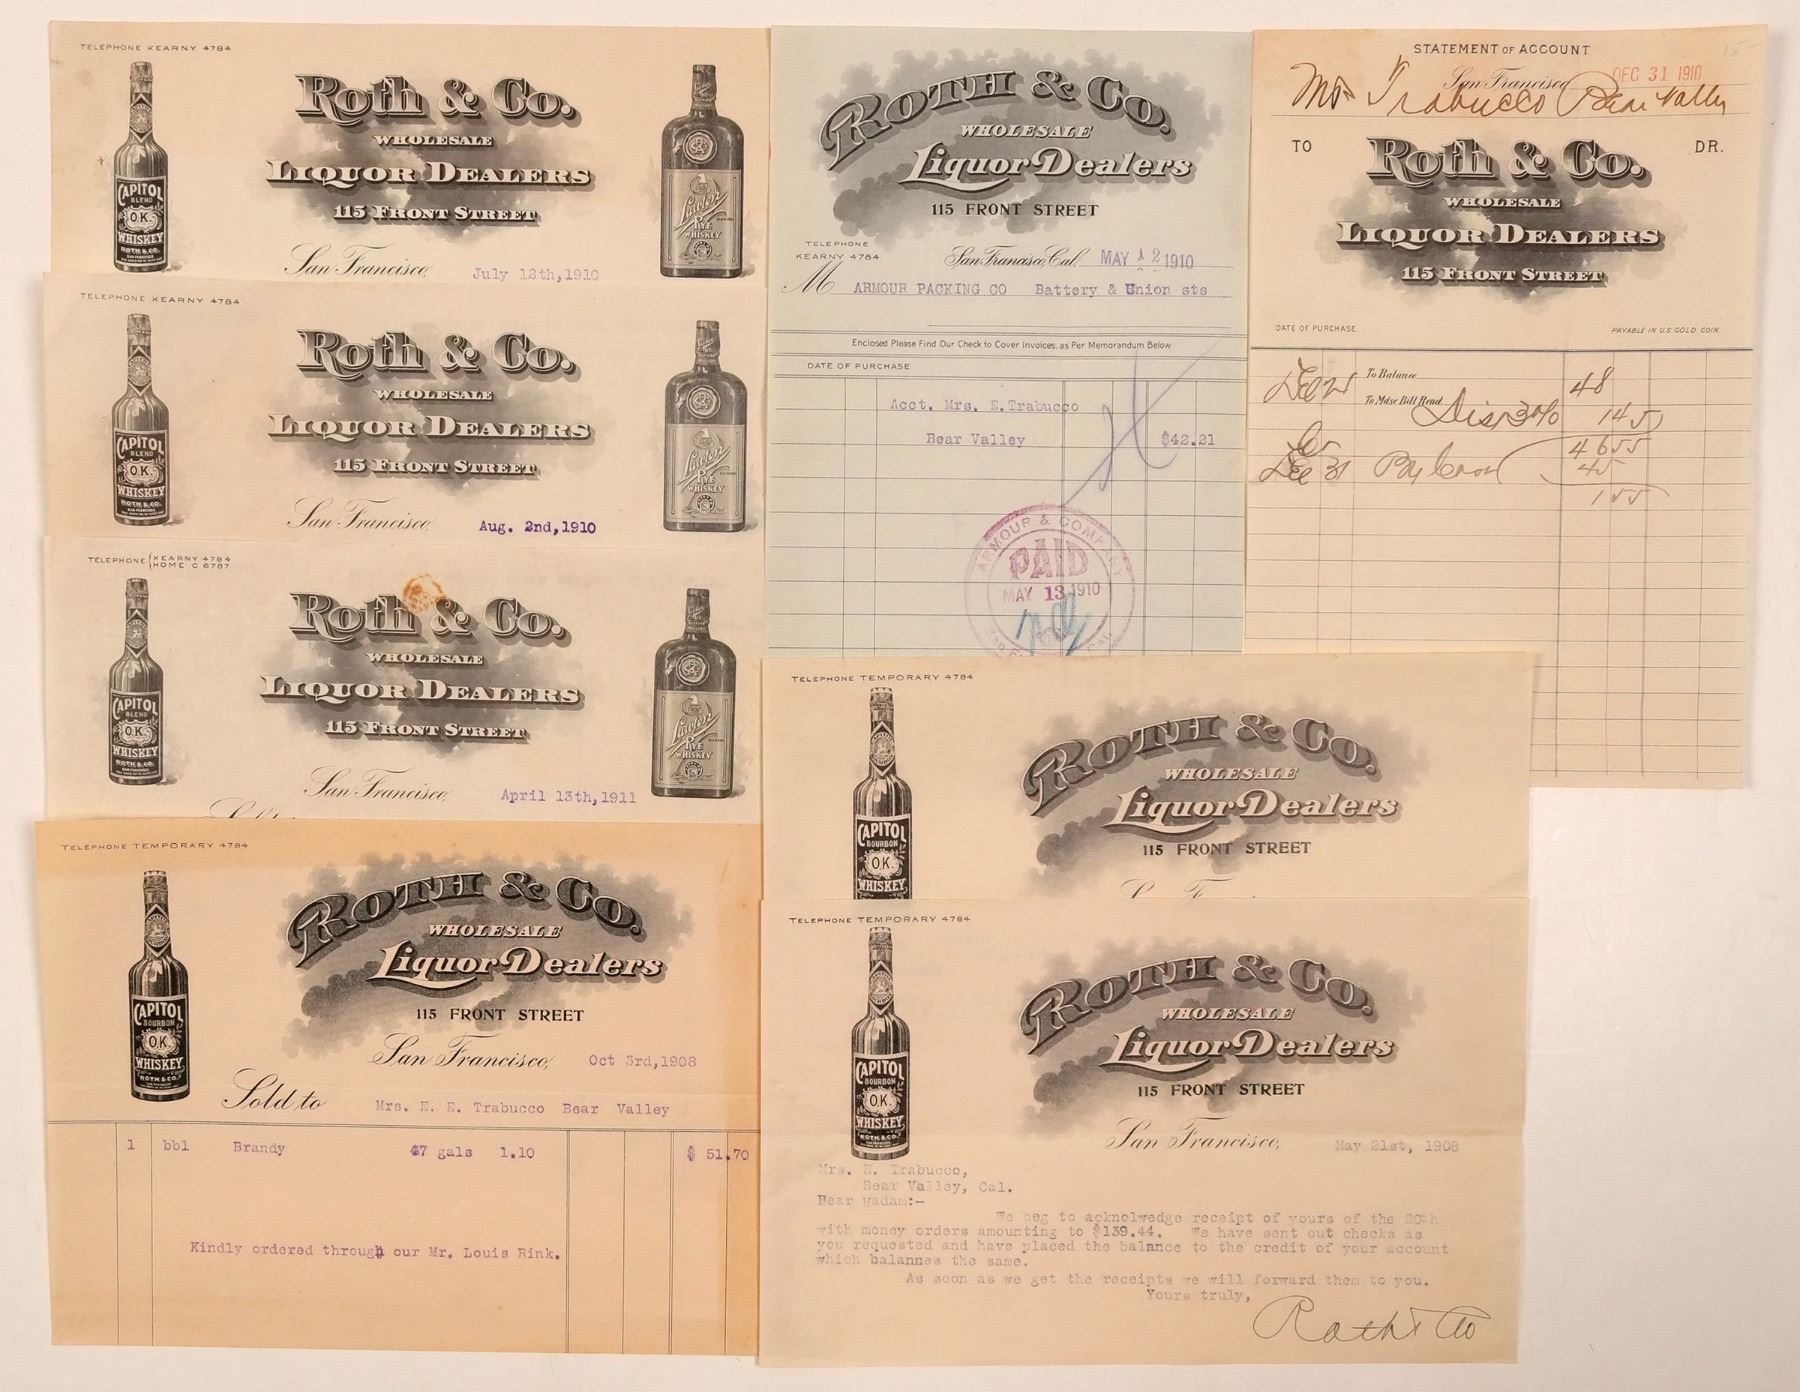 TELEPHONE KEARNY 4784
Roth & Co.
WHOLESALE
LIQUOR DEALERS
115 FRONT STREET
San Francisco, July 12th,1910
CAPITOL
BLEND
O.K.
WHISKEY
ROTH & CO.
SAN FRANCISCO.
Lawton
RYE
WHISKEY
TELEPHONE KEARNY 4784
Roth & Co.
WHOLESALE
LIQUOR DEALERS
115 FRONT STREET
San Francisco, Aug. 2nd,1910
CAPITOL
BLEND
O.K.
WHISKEY
ROTH & CO.
SAN FRANCISCO.
Lawton
RYE
WHISKEY
TELEPHONE KEARNY 4784
HOME C 6787
Roth & Co.
WHOLESALE
LIQUOR DEALERS
115 FRONT STREET
San Francisco, April 13th,1911
CAPITOL
BLEND
O.K.
WHISKEY
ROTH & CO.
SAN FRANCISCO.
Lawton
RYE
WHISKEY
TELEPHONE TEMPORARY 4784
ROTH & CO.
WHOLESALE
Liquor Dealers
115 FRONT STREET
San Francisco, Oct 3rd,1908
CAPITOL
BOURBON
O.K.
WHISKEY
ROTH & CO.
Sold to Mrs. E. E. Trabucco Bear Valley
1 bbl Brandy 47 gals 1.10 $ 51.70
Kindly ordered through our Mr. Louis Rink.
ROTH & CO.
WHOLESALE
Liquor Dealers
115 FRONT STREET
TELEPHONE
KEARNY 4784.
San Francisco, Cal. MAY 12 1910
M ARMOUR PACKING CO Battery & Union sts
Enclosed Please Find Our Check to Cover Invoices, as Per Memorandum Below
DATE OF PURCHASE
Acct. Mrs. E.Trabucco
Bear Valley $42.21
ARMOUR & COMPANY
PAID
MAY 13 1910
STATEMENT OF ACCOUNT
San Francisco DEC 31 1910
Mrs Trabucco Bear Valley
TO DR.
Roth & Co.
WHOLESALE
LIQUOR DEALERS
115 FRONT STREET
DATE OF PURCHASE PAYABLE IN U.S. GOLD COIN.
To Balance
To Mdse Bill Rend. 48
Dis 3% 145
4655
Dec 31 By 45
155
TELEPHONE TEMPORARY 4784
ROTH & CO.
WHOLESALE
Liquor Dealers
115 FRONT STREET
CAPITOL
BOURBON
O.K.
WHISKEY
TELEPHONE TEMPORARY 4784
ROTH & CO.
WHOLESALE
Liquor Dealers
115 FRONT STREET
San Francisco, May 21st, 1908
CAPITOL
BOURBON
O.K.
WHISKEY
ROTH & CO.
Mrs. E. Trabucco,
Bear Valley, Cal.
Dear Madam:-
We beg to acknolwedge receipt of yours of the 20th
with money orders amounting to $139.44. We have sent out checks as
you requested and have placed the balance to the credit of your account
which balannes the same.
As soon as we get the receipts we will forward them to you.
Yours truly,
Roth & Co